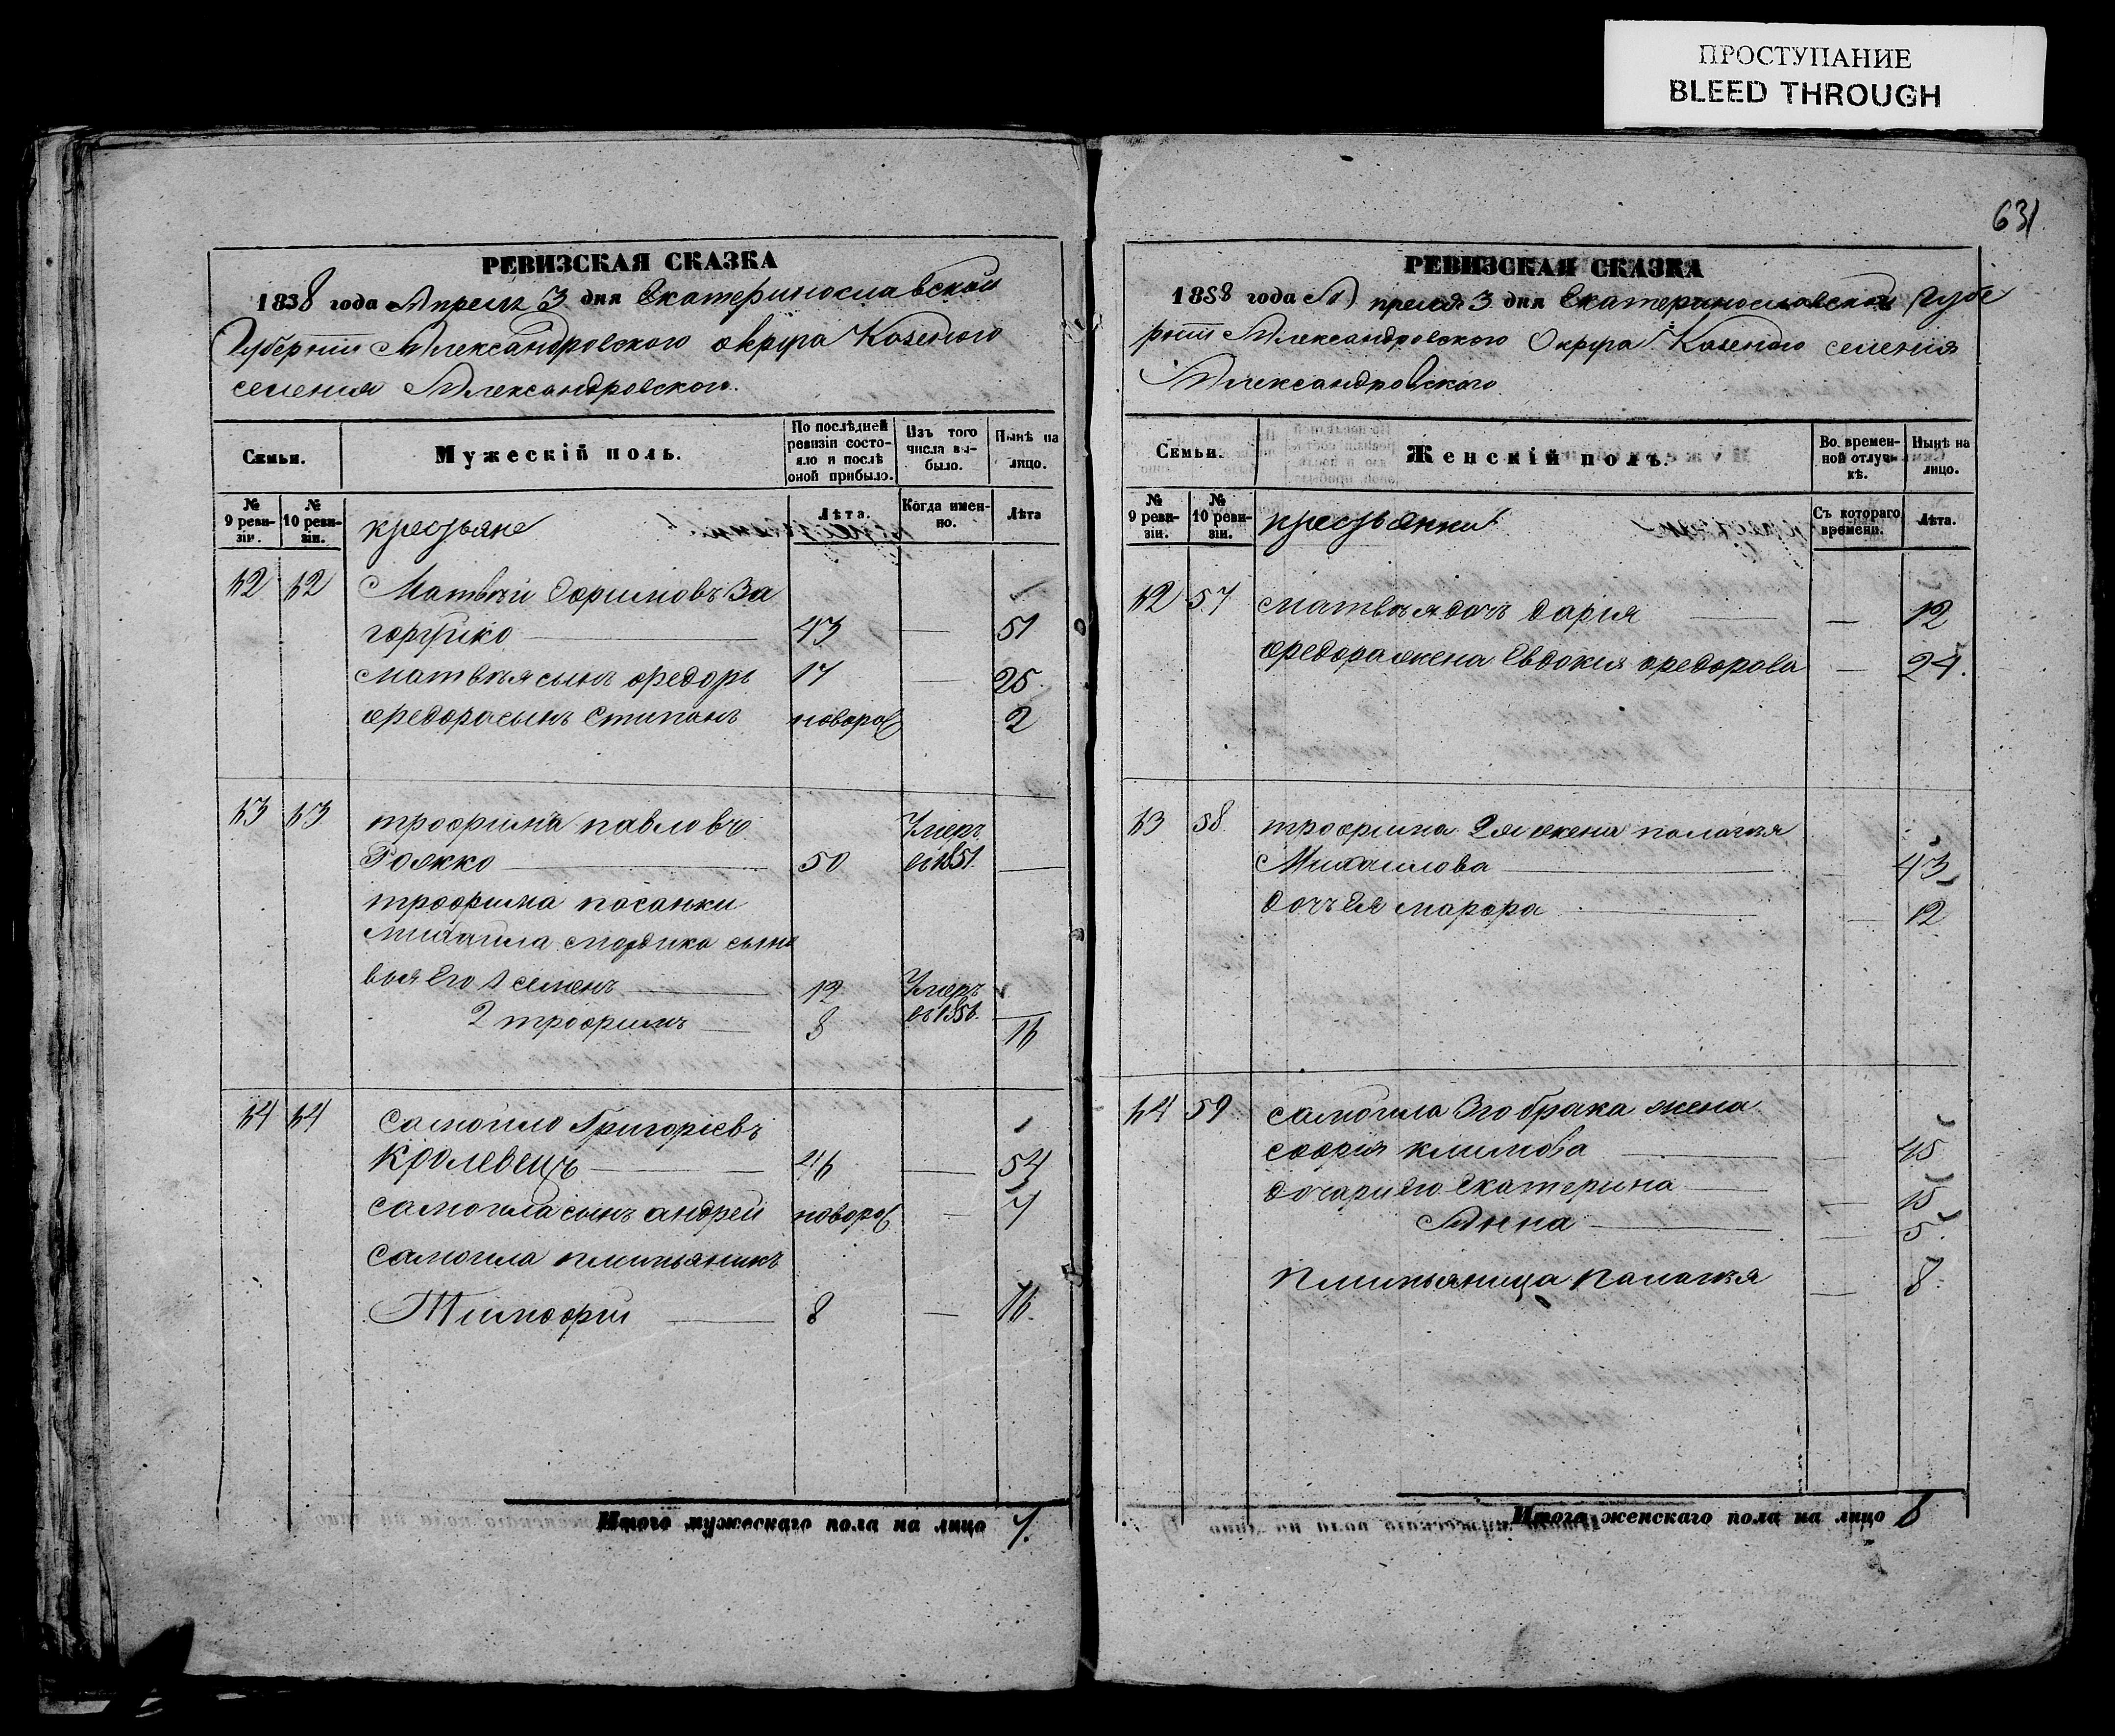 ПРОСТУПАНИЕ
BLEED THROUGH
631
РЕВИЗСКАЯ СКАЗКА
1858 года Апреля 3 дня Екатеринославской
Губерніи Александровского округа Казеного
селения Александровского.
Семьи.
Мужескій полъ.
По послѣдней ревизіи состояло и послѣ оной прибыло.
Изъ того числа выбыло.
Нынѣ на лицо.
№ 9 ревизіи.
№ 10 ревизіи.
крестьяне
Лѣта.
Когда именно.
Лѣта
52 52 Матвѣй Ефимовъ За
горулко 43 — 51
Матвѣя сынъ Федоръ 17 — 25
Федора сынъ Стипанъ новорож 2
53 53 трофима павловъ Умеръ
50 въ 1851
трофима пасанки
Михаила сыно
вья Его 1 семенъ 12 Умеръ
2 трофимъ 8 въ 185 16
54 54 Самойло Григоріевъ
Кролевецъ 46 — 54
Самоила сынъ андрей новорож — 7
Самоила плимьяникъ
Тимофій 8 — 16
Итого мужескаго пола на лицо 7.
РЕВИЗСКАЯ СКАЗКА
1858 года Апреля 3 дня Екатеринославской Губе
рніи Александровского Округа Казеного селения
Александровского
Семьи.
Женскій полъ.
Во временной отлучкѣ.
Нынѣ на лицо.
№ 9 ревизіи.
№ 10 ревизіи.
крестьянки
Съ котораго времени.
Лѣта.
52 57 Матвѣя дочь дарія — 12
Федора жена Евдокия Федорова — 24.
53 58 трофима 2я жена палагѣя
Михаилова 43
дочь Ея марфа 12
54 59 самоила 3го брака жена
софія климова 45
дочари Его Екатерина 15
Анна 5
Плимьяница Палагѣя 8
Итого женскаго пола на лицо 8